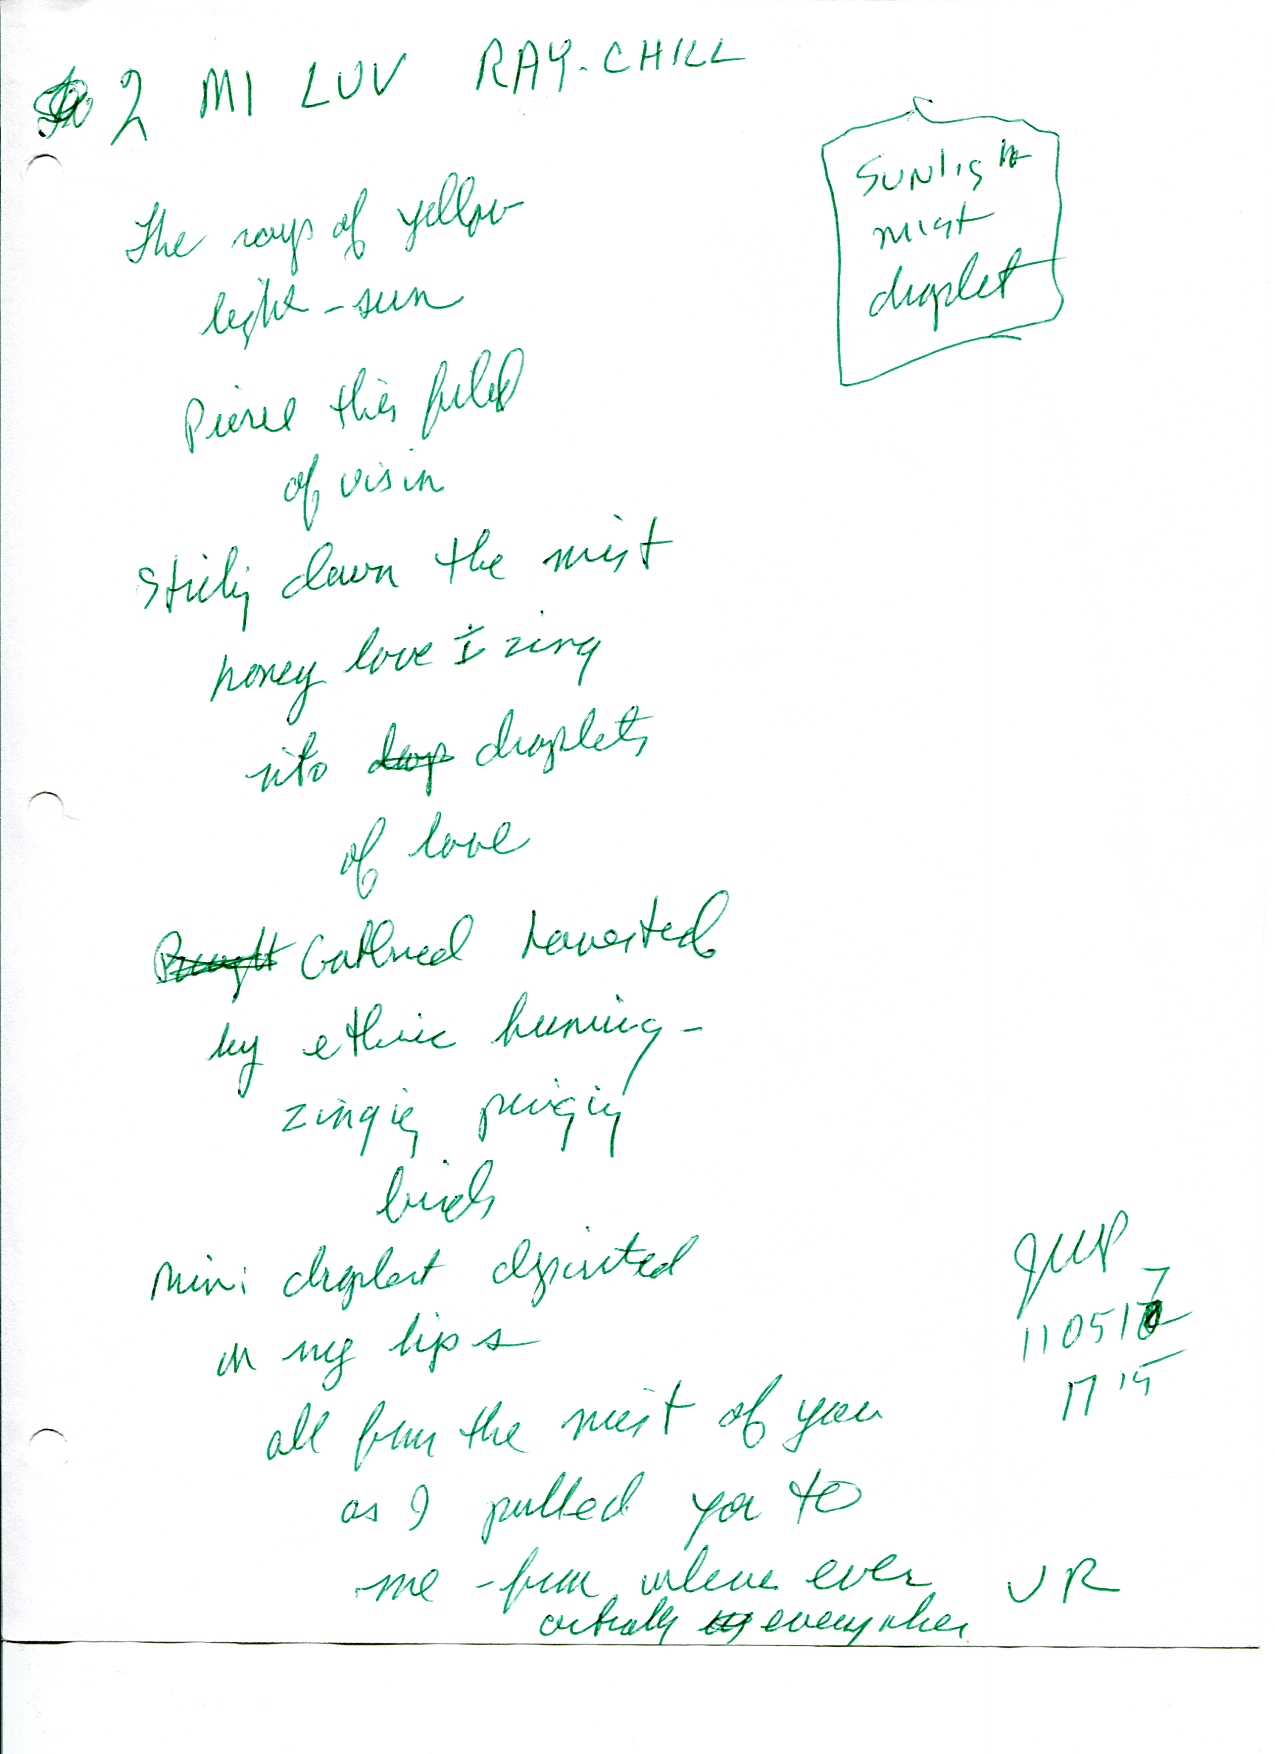 2 MI LUV RAY-CHILL
Sunlight
mist
droplet
The rays of yellow
light - sun
Pierce this field
of visin
down the mist
honey love I zing
into droplets
of love
Gathered harvested
by etheric huming -
zinging pinging
birds
mini droplest deposited
on my lips
all from the mist of you
as I pulled you to
me - from where ever UR
actually everywher
JWP
110517
17 15